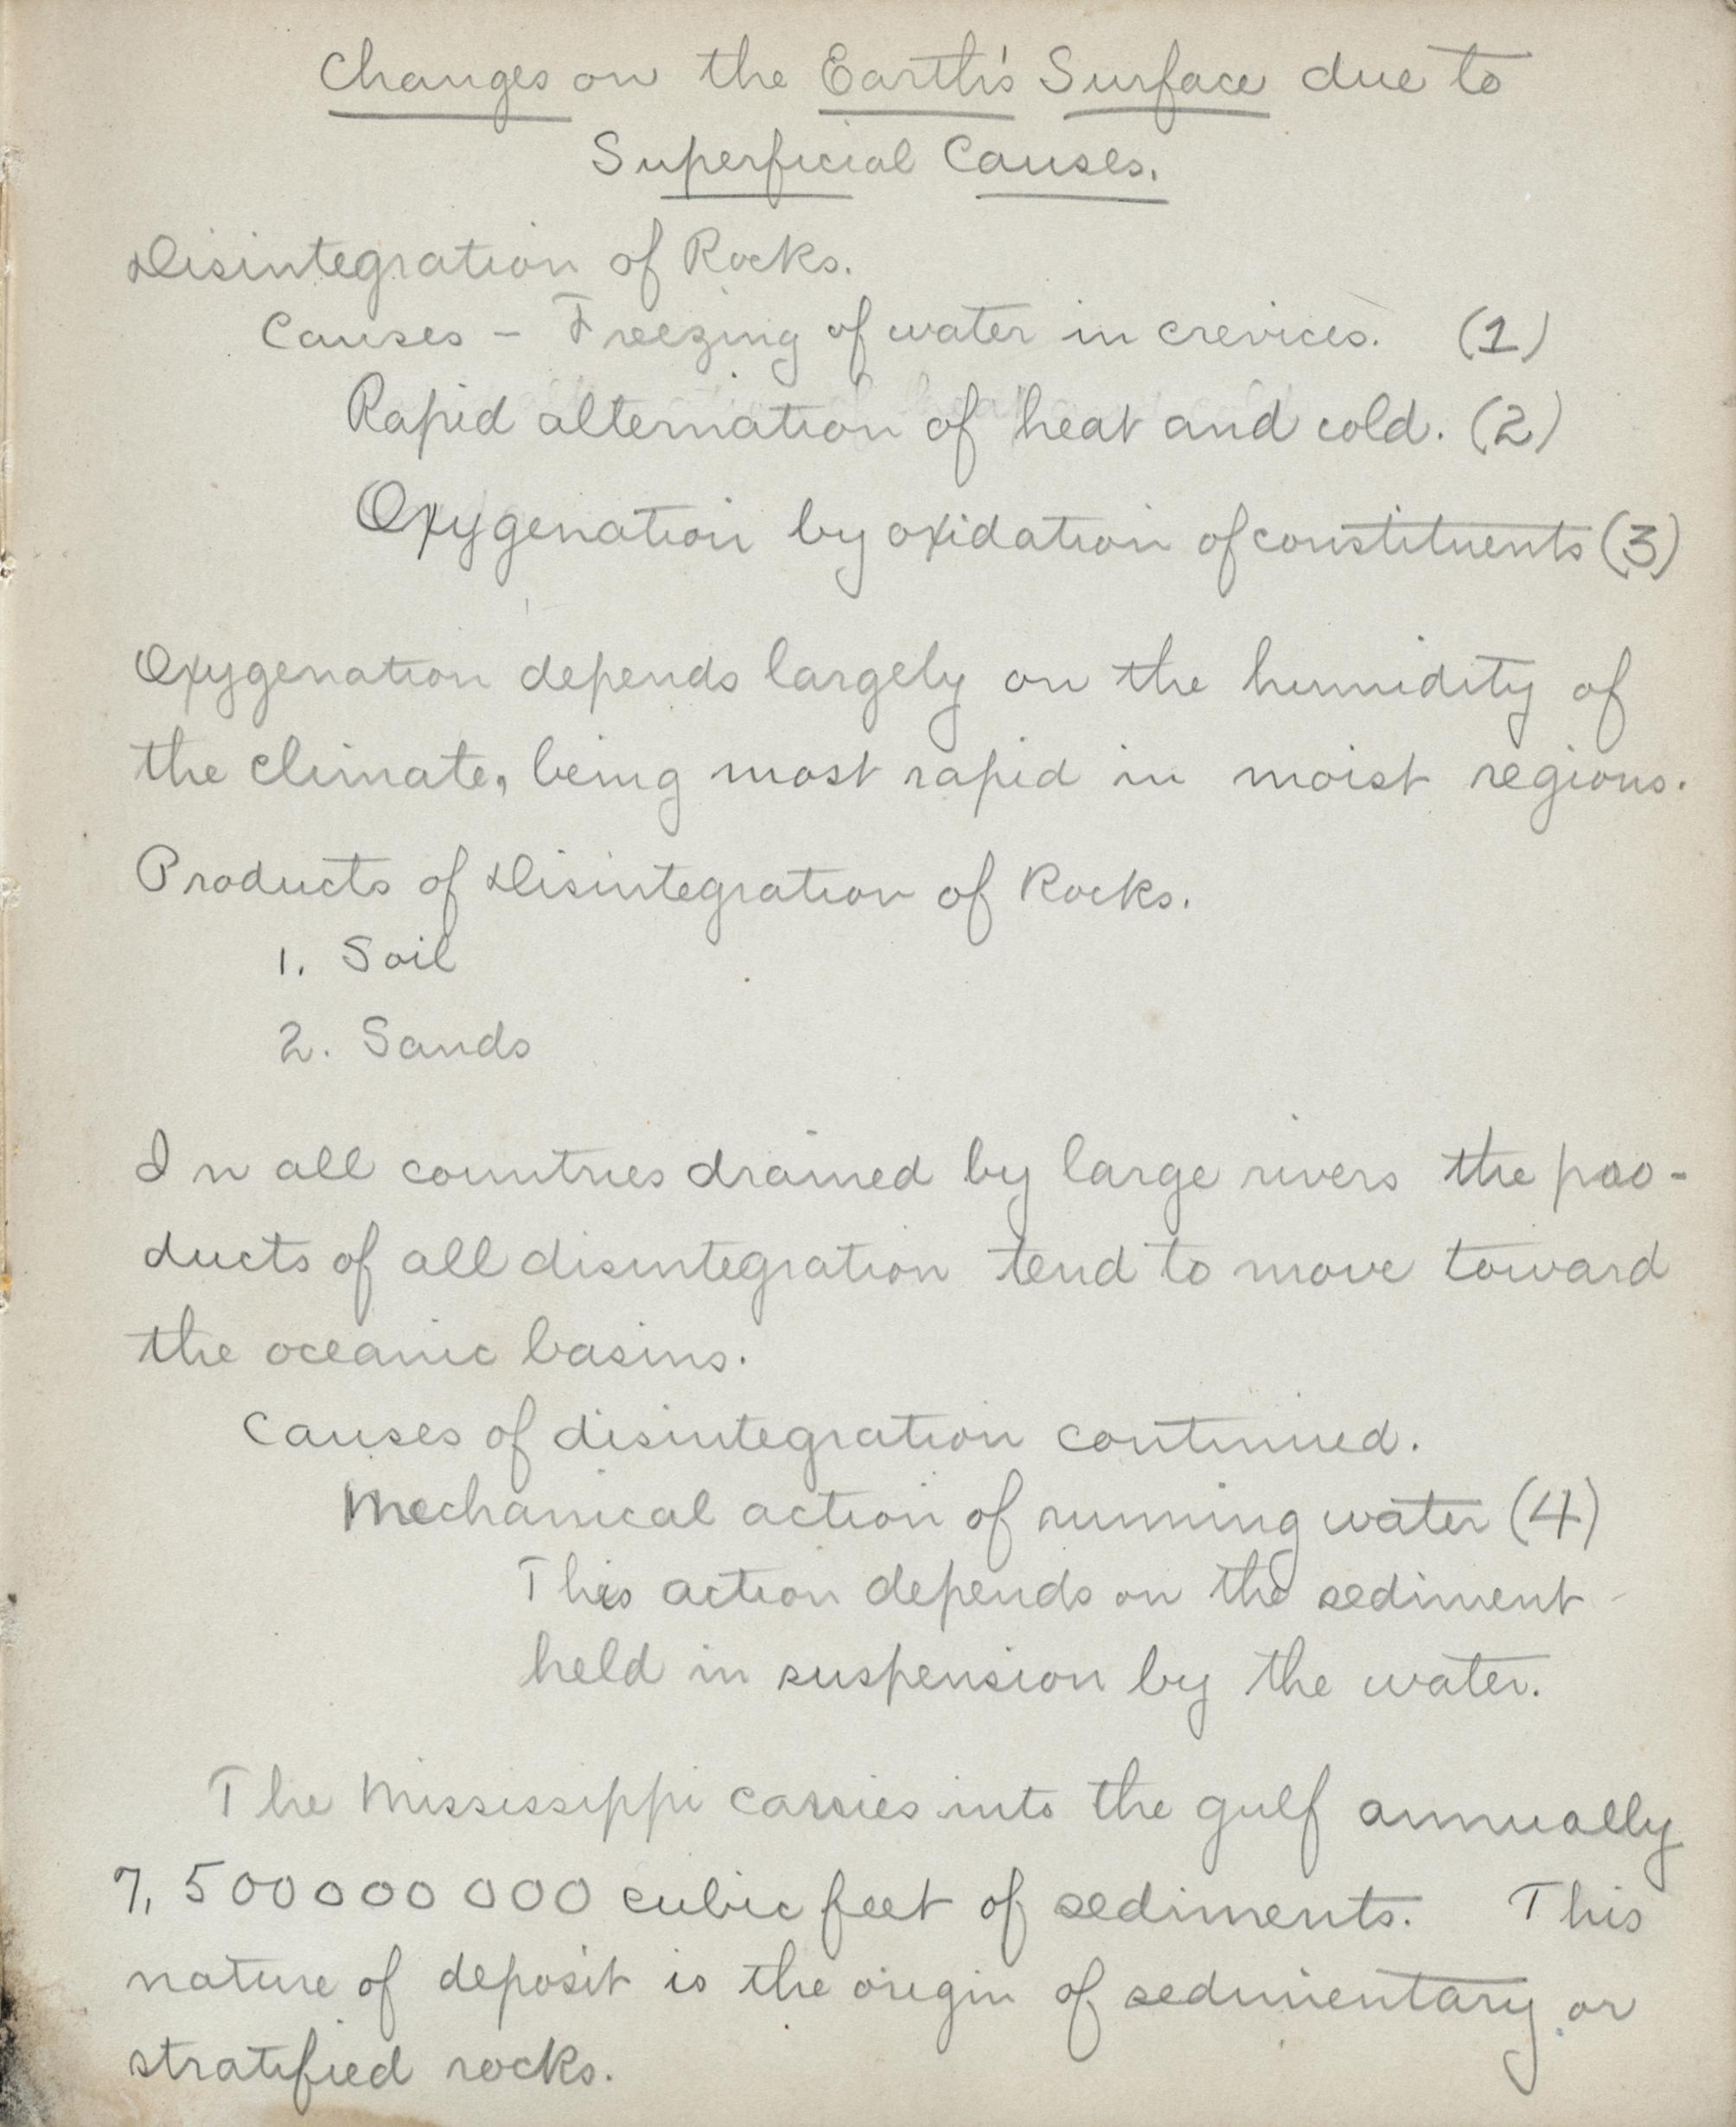 Changes on the Earth's Surface due to
Superficial Causes.
Disintegration of Rocks.
Causes - Freezing of water in crevices. (1)
Rapid alternation of heat and cold. (2)
Oxygenation by oxidation of constituents (3)
Oxygenation depends largely on the humidity of
the climate, being most rapid in moist regions.
Products of Disintegration of Rocks.
1. Soil
2. Sands
In all countries drained by large rivers the pro-
ducts of all disintegration tend to move toward
the oceanic basins.
Causes of disintegration continued.
Mechanical action of running water (4)
This action depends on the sediment
held in suspension by the water.
The Mississippi carries into the gulf annually
7,500000000 cubic feet of sediments. This
nature of deposit is the origin of sedimentary or
stratified rocks.